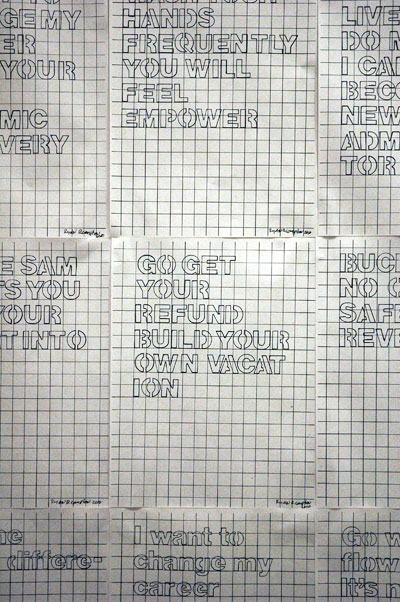 GE MY
ER
YOUR
MIC
VERY
HANDS
FREQUENTLY
YOU WILL
FEEL
EMPOWER
LIVE
DO N
I CA
BECO
NEW
ADM
TOR
E SAM
S YOU
YOUR
T INTO
GO GET
YOUR
REFUND
BUILD YOUR
OWN VACAT
ION
BUC
NO C
SAFE
REVE
ne
differe-
I want to
change my
career
Go w
flow
It's n